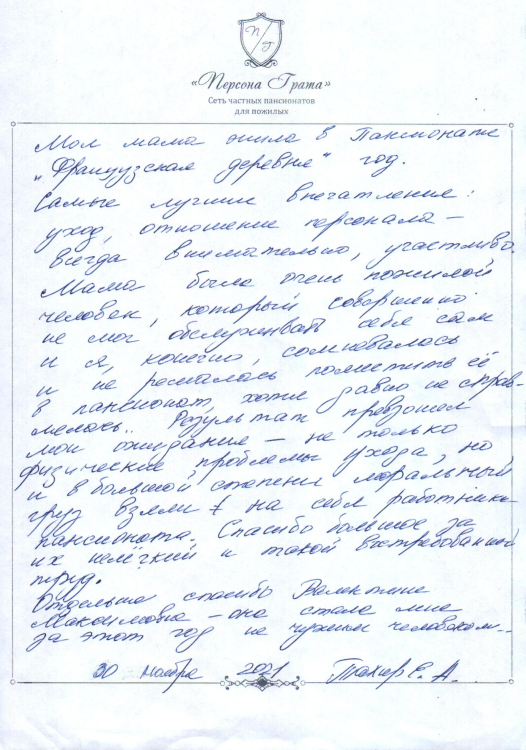 П/Г
«Персона Грата»
Сеть частных пансионатов
для пожилых
Моя мама жила в Пансионате
„Французская деревня" год.
Самые лучшие впечатления:
уход, отношение персонала –
всегда внимательно, участливо.
Мама была очень пожилой
человек, который совершенно
не мог обслуживать себя сам
и я, конечно, сомневалась
и не решалась поместить её
в пансионат, хотя давно не справ-
лялась.. Результат превзошел
мои ожидание – не только
физические проблемы ухода, но
и в большой степени моральный
груз взяли на себя работники
пансионата. Спасибо большое за
их нелёгкий и такой востребованный
труд.
Отдельно спасибо Валентине
Максимовне – она стала мне
за этот год не чужим человеком...
30 ноября 2021 Е. А.